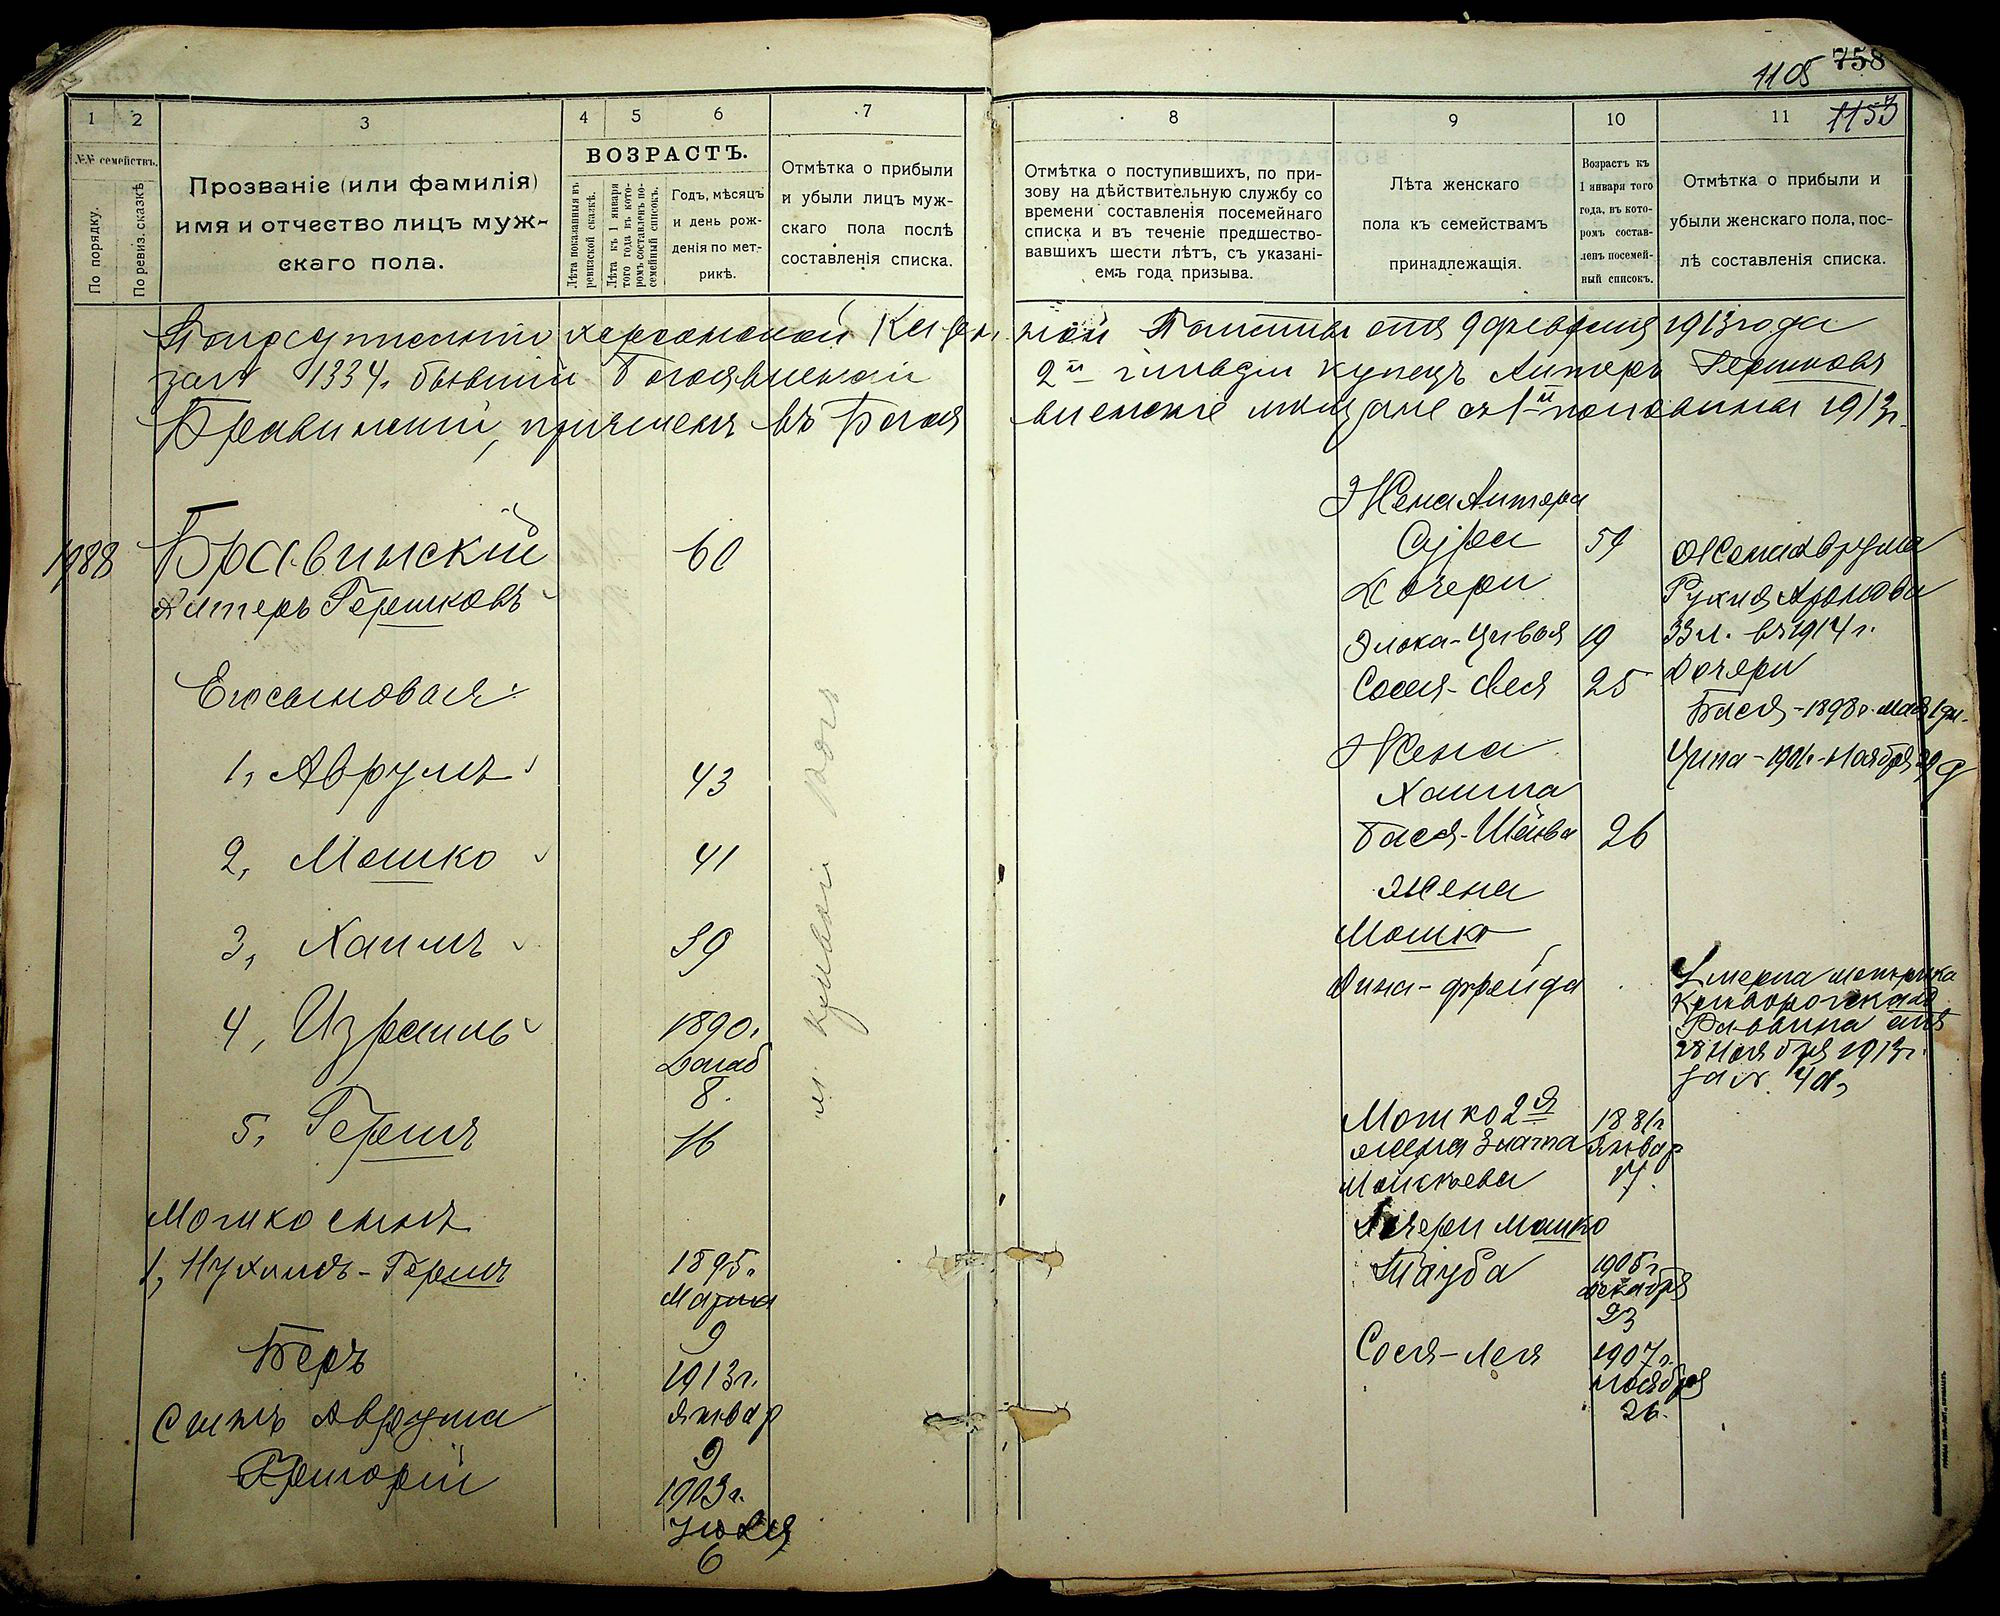 758
1105
1153
1
2
3
4
5
6
7
8
9
10
11
№№ семействъ.
По порядку.
По ревиз. сказкѣ
Прозваніе (или фамилія)
имя и отчество лицъ муж-
скаго пола.
ВОЗРАСТЪ.
Лѣта показанныя въ
ревизской сказкѣ.
Лѣта къ 1 января
того года въ кото-
ромъ составленъ по-
семейный списокъ.
Годъ, мѣсяцъ
и день рож-
денія по мет-
рикѣ.
Отмѣтка о прибыли
и убыли лицъ муж-
скаго пола послѣ
составленія списка.
Отмѣтка о поступившихъ, по при-
зову на дѣйствительную службу со
времени составленія посемейнаго
списка и въ теченіе предшество-
вавшихъ шести лѣтъ, съ указані-
емъ года призыва.
Лѣта женскаго
пола къ семействамъ
принадлежащія.
Возрастъ къ
1 января того
года, въ кото-
ромъ состав-
ленъ посемей-
ный списокъ.
Отмѣтка о прибыли и
убыли женскаго пола, пос-
лѣ составленія списка.
херсонской Казен ной Палаты отъ 9 февраля 1913 года
за № 1334. бывшій Богоявленскій 2й гильдіи купецъ Алтеръ Гершковъ
Бравинскій, причисленъ въ Богоя вленскіе мѣщане съ 1й половины 1913 г.
1988
Бравинскій 60
Алтеръ Гершковъ
Его сыновья:
1, Аврумъ 43
2, Мошко 41
3, Хаимъ 39
4, Израиль 1890 г.
8.
5, Гершъ 16
Мошко сынъ
1, Нухимъ-Гершъ 1895 г.
Марта
9
Беръ 1913 г.
Январ
9
Сынъ Аврума
Григорій 1903 г.
Іюля
6
м. Кривой Рогъ
Жена Алтера
Сура 59
Дочери
Элька-Цивья 19
Сося-Лея 25
Жена
Хаима
Бася-Шейва 26
Жена
Мошко
Дина-Фрейда
Мошко 2я 1881 г.
жена Злата Январ
Мошкова 17.
Дочери Мошко
Тауба 1905 г.
декабря
23
Сося-Лея 1907 г.
ноября
26.
Жена Аврума
Рухля Аронова
33 л. въ 1914 г.
Дочери
Бася-1898 г. мая 1 дн.
Ципа-1901 г. Ноября 29 д
Умерла метрика
Криворожскаго
Раввина отъ
28 Ноября 1913 г.
за №. 408,